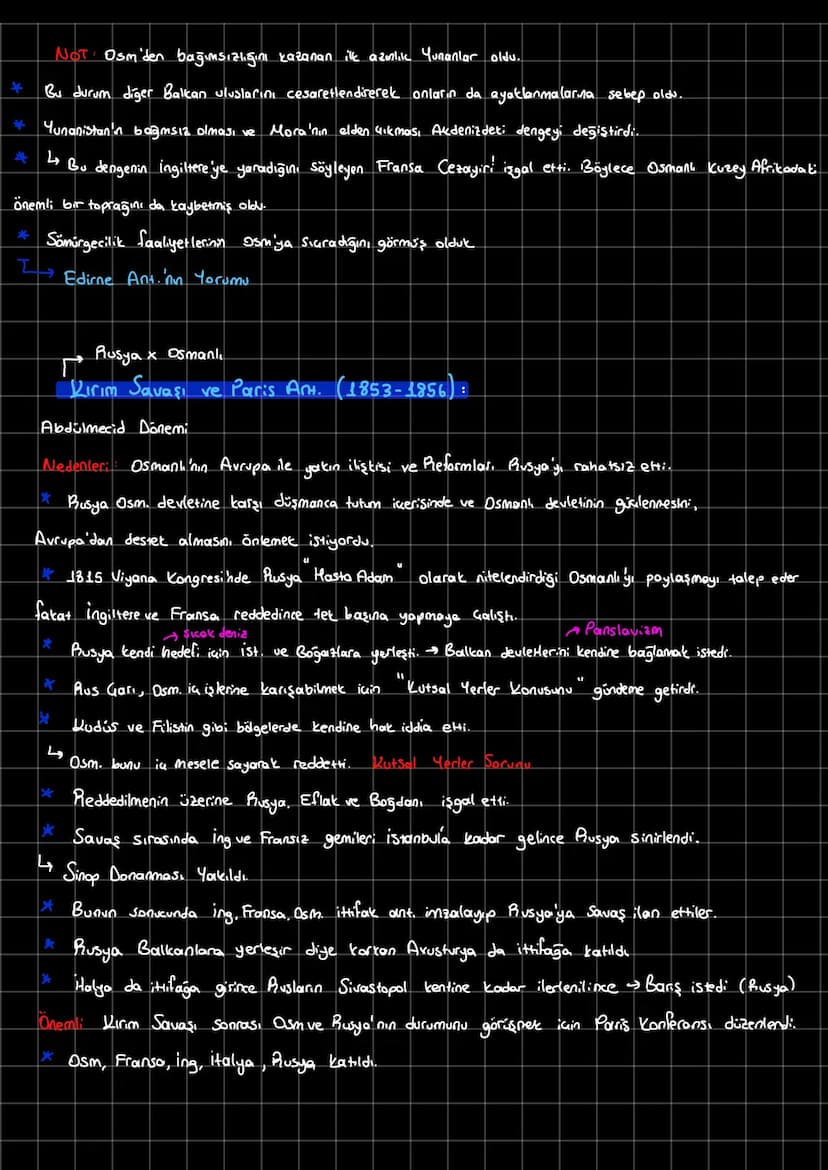 NOT: Osm'den bağımsızlığını kazanan ilk azınlık Yunanlar oldu.
* Bu durum diğer Balkan uluslarını cesaretlendirerek onların da ayaklanmalarına sebep oldu.
* Yunanistan'ın bağımsız olması ve Mora'nın elden çıkması Akdenizdeki dengeyi değiştirdi.
* ↳ Bu dengenin İngiltere'ye yaradığını söyleyen Fransa Cezayiri işgal etti. Böylece Osmanlı Kuzey Afrikadaki
önemli bir toprağını da kaybetmiş oldu.
* Sömürgecilik faaliyetlerinin Osm'ya sıçradığını görmüş olduk
↳ Edirne Ant.'nın Yorumu
→ Rusya x Osmanlı
Kırım Savaşı ve Paris Ant. (1853-1856):
Abdülmecid Dönemi
Nedenleri: Osmanlı'nın Avrupa ile yakın ilişkisi ve Reformlar, Rusya'yı rahatsız etti.
* Rusya Osm. devletine karşı düşmanca tutum içerisinde ve Osmanlı devletinin güçlenmesini,
Avrupa'dan destek almasını önlemek istiyordu.
* 1815 Viyana Kongresi'nde Rusya "Hasta Adam" olarak nitelendirdiği Osmanlı'yı paylaşmayı talep eder
fakat İngiltere ve Fransa reddedince tek başına yapmaya çalıştı.
→ Sıcak deniz → Panslavizm
* Rusya kendi hedefi için ist. ve Boğazlara yerleşti. → Balkan devletlerini kendine bağlamak istedi.
* Rus Çarı, Osm. iç işlerine karışabilmek için "Kutsal Yerler Konusunu" gündeme getirdi.
* Kudüs ve Filistin gibi bölgelerde kendine hak iddia etti.
↳ Osm. bunu iç mesele sayarak reddetti. Kutsal Yerler Sorunu
* Reddedilmenin üzerine Rusya, Eflak ve Boğdanı işgal etti.
* Savaş sırasında ing ve Fransız gemileri istanbul'a kadar gelince Rusya sinirlendi.
↳ Sinop Donanması Yakıldı.
* Bunun sonucunda ing, Fransa, Osm. ittifak ant. imzalayıp Rusya'ya Savaş ilan ettiler.
* Rusya Balkanlara yerleşir diye korkan Avusturya da ittifağa katıldı
* İtalya da ittifağa girince Rusların Sivastopol kentine kadar ilerlenilince → Barış istedi (Rusya)
Önemli: Kırım Savaşı sonrası Osm ve Rusya'nın durumunu görüşmek için Paris Konferansı düzenlendi.
* Osm, Fransa, ing, italya, Rusya katıldı.